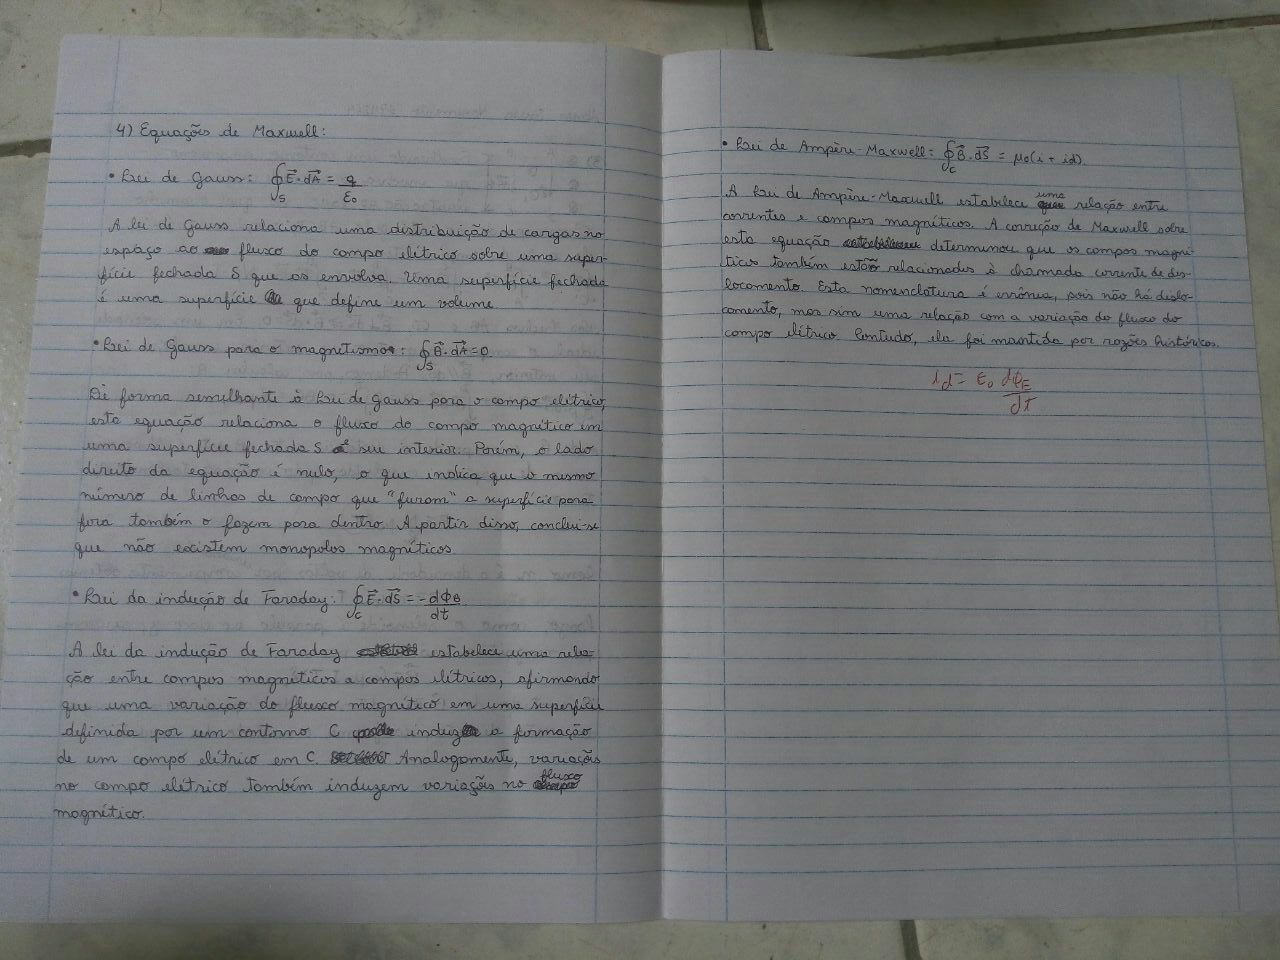 4) Equações de Maxwell:
• Lei de Gauss: ∮S E⃗·dA⃗ = q/ε₀
A lei de Gauss relaciona uma distribuição de cargas no
espaço ao fluxo do campo elétrico sobre uma super-
fície fechada S que as envolva. Uma superfície fechada
é uma superfície que define um volume
• Lei de Gauss para o magnetismo: ∮S B⃗·dA⃗ = 0
De forma semelhante à Lei de Gauss para o campo elétrico,
esta equação relaciona o fluxo do campo magnético em
uma superfície fechada S e seu interior. Porém, o lado
direito da equação é nulo, o que indica que o mesmo
número de linhas de campo que "furam" a superfície para
fora também o fazem para dentro. A partir disso, conclui-se
que não existem monopolos magnéticos
• Lei da indução de Faraday: ∮C E⃗·dS⃗ = -dΦB/dt
A lei da indução de Faraday estabelece uma rela-
ção entre campos magnéticos a campos elétricos, afirmando
que uma variação do fluxo magnético em uma superfície
definida por um contorno C induz a formação
de um campo elétrico em C. Analogamente, variações
no campo elétrico também induzem variações no fluxo
magnético.
• Lei de Ampère-Maxwell: ∮C B⃗·dS⃗ = μ₀(i + id)
A Lei de Ampère-Maxwell estabelece uma relação entre
correntes e campos magnéticos. A correção de Maxwell sobre
esta equação determinou que os campos magné-
ticos também estão relacionados à chamada corrente de des-
locamento. Esta nomenclatura é errônea, pois não há deslo-
camento, mas sim uma relação com a variação do fluxo do
campo elétrico. Contudo, ela foi mantida por razões históricas.
id = ε₀ dΦE/dt